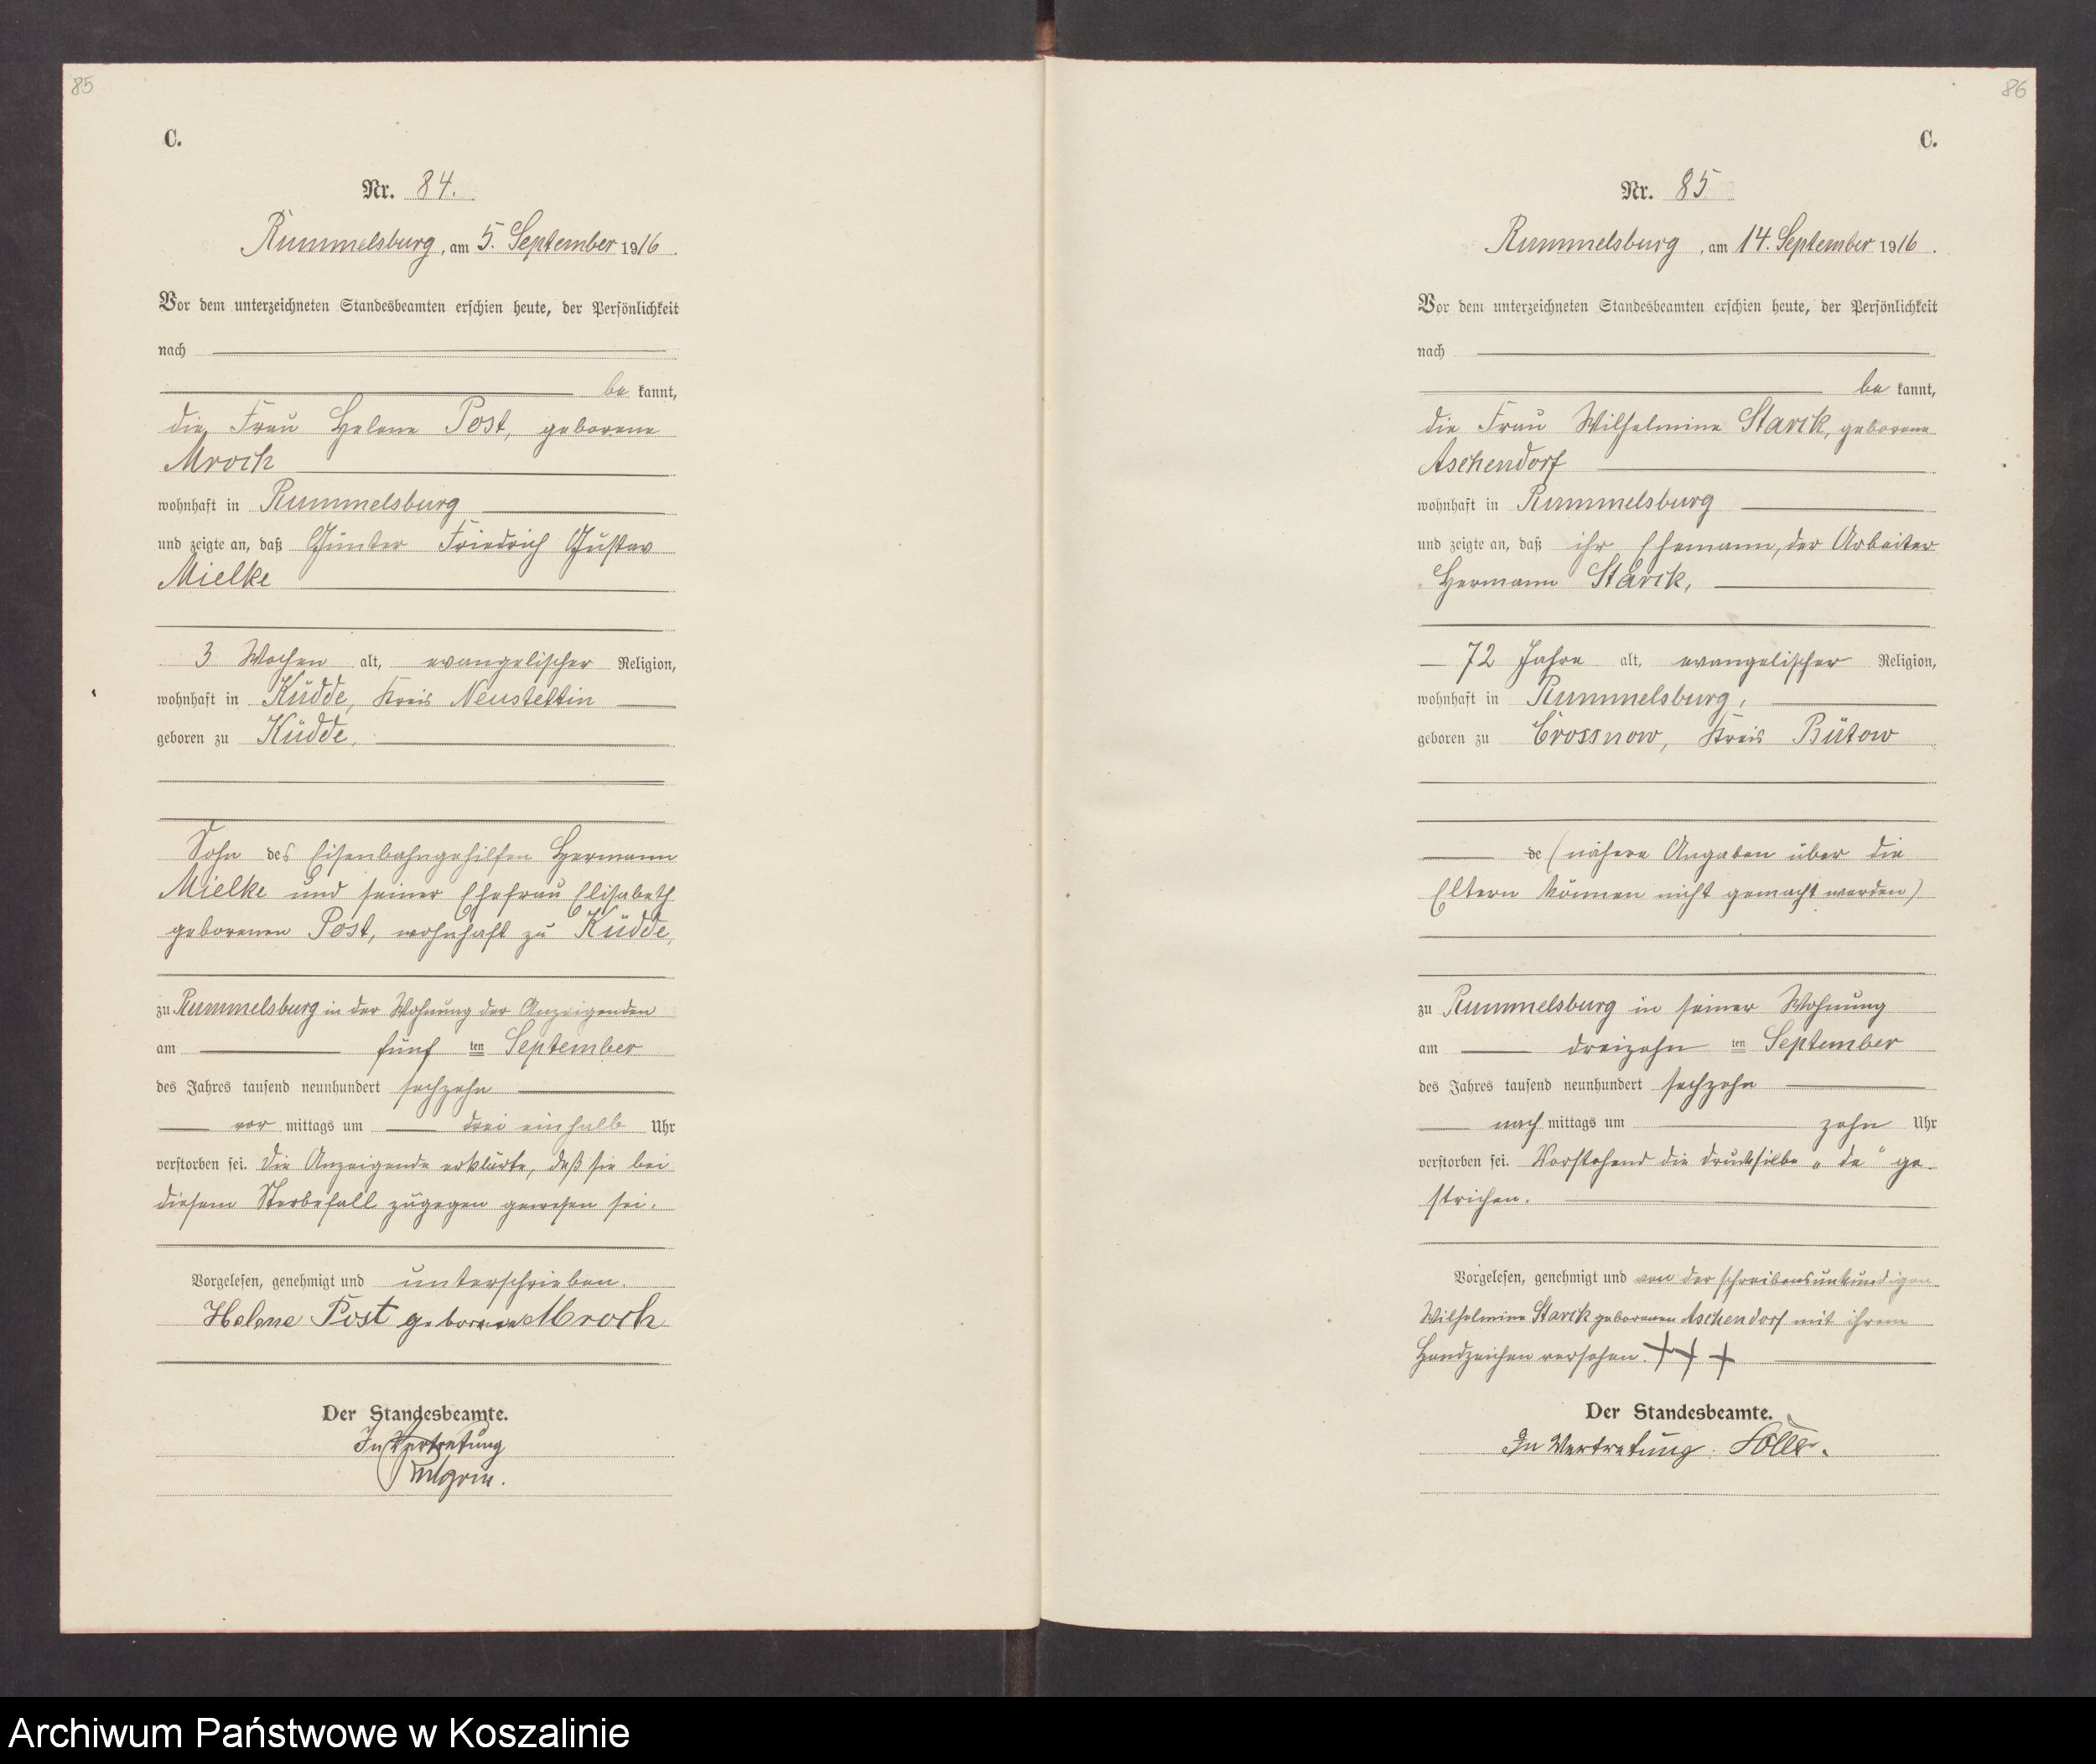 85
C.
Nr. 84.
Rummelsburg, am 5. September 1916.
Vor dem unterzeichneten Standesbeamten erschien heute, der Persönlichkeit
nach
be kannt,
die Frau Helene Post, geborene
Mroch
wohnhaft in Rummelsburg
und zeigte an, daß Günter Friedrich Gustav
Mielke
3 Wochen alt, evangelischer Religion,
wohnhaft in Küdde, Kreis Neustettin
geboren zu Küdde,
Sohn des Eisenbahngehilfen Hermann
Mielke und seiner Ehefrau Elisabeth
geborenen Post, wohnhaft zu Küdde,
zu Rummelsburg in der Wohnung der Anzeigenden
am fünf ten September
des Jahres tausend neunhundert sechzehn
vor mittags um drei einhalb Uhr
verstorben sei. Die Anzeigende erklärte, daß sie bei
diesem Sterbefall zugegen gewesen sei.
Vorgelesen, genehmigt und unterschrieben.
Helene Post geborene Mroch
Der Standesbeamte.
In Vertretung
86
C.
Nr. 85
Rummelsburg, am 14. September 1916.
Vor dem unterzeichneten Standesbeamten erschien heute, der Persönlichkeit
nach
be kannt,
die Frau Wilhelmine Starck, geborene
Aschendorf
wohnhaft in Rummelsburg
und zeigte an, daß ihr Ehemann, der Arbeiter
Hermann Starck,
72 Jahre alt, evangelischer Religion,
wohnhaft in Rummelsburg,
geboren zu Crossnow, Kreis Bütow
de (nähere Angaben über die
Eltern können nicht gemacht werden)
zu Rummelsburg in seiner Wohnung
am dreizehn ten September
des Jahres tausend neunhundert sechzehn
nach mittags um zehn Uhr
verstorben sei. Vorstehend die Drucksilbe „de“ ge-
strichen.
Vorgelesen, genehmigt und von der schreibensunkundigen
Wilhelmine Starck geborenen Aschendorf mit ihrem
Handzeichen versehen. +++
Der Standesbeamte.
In Vertretung.
Archiwum Państwowe w Koszalinie